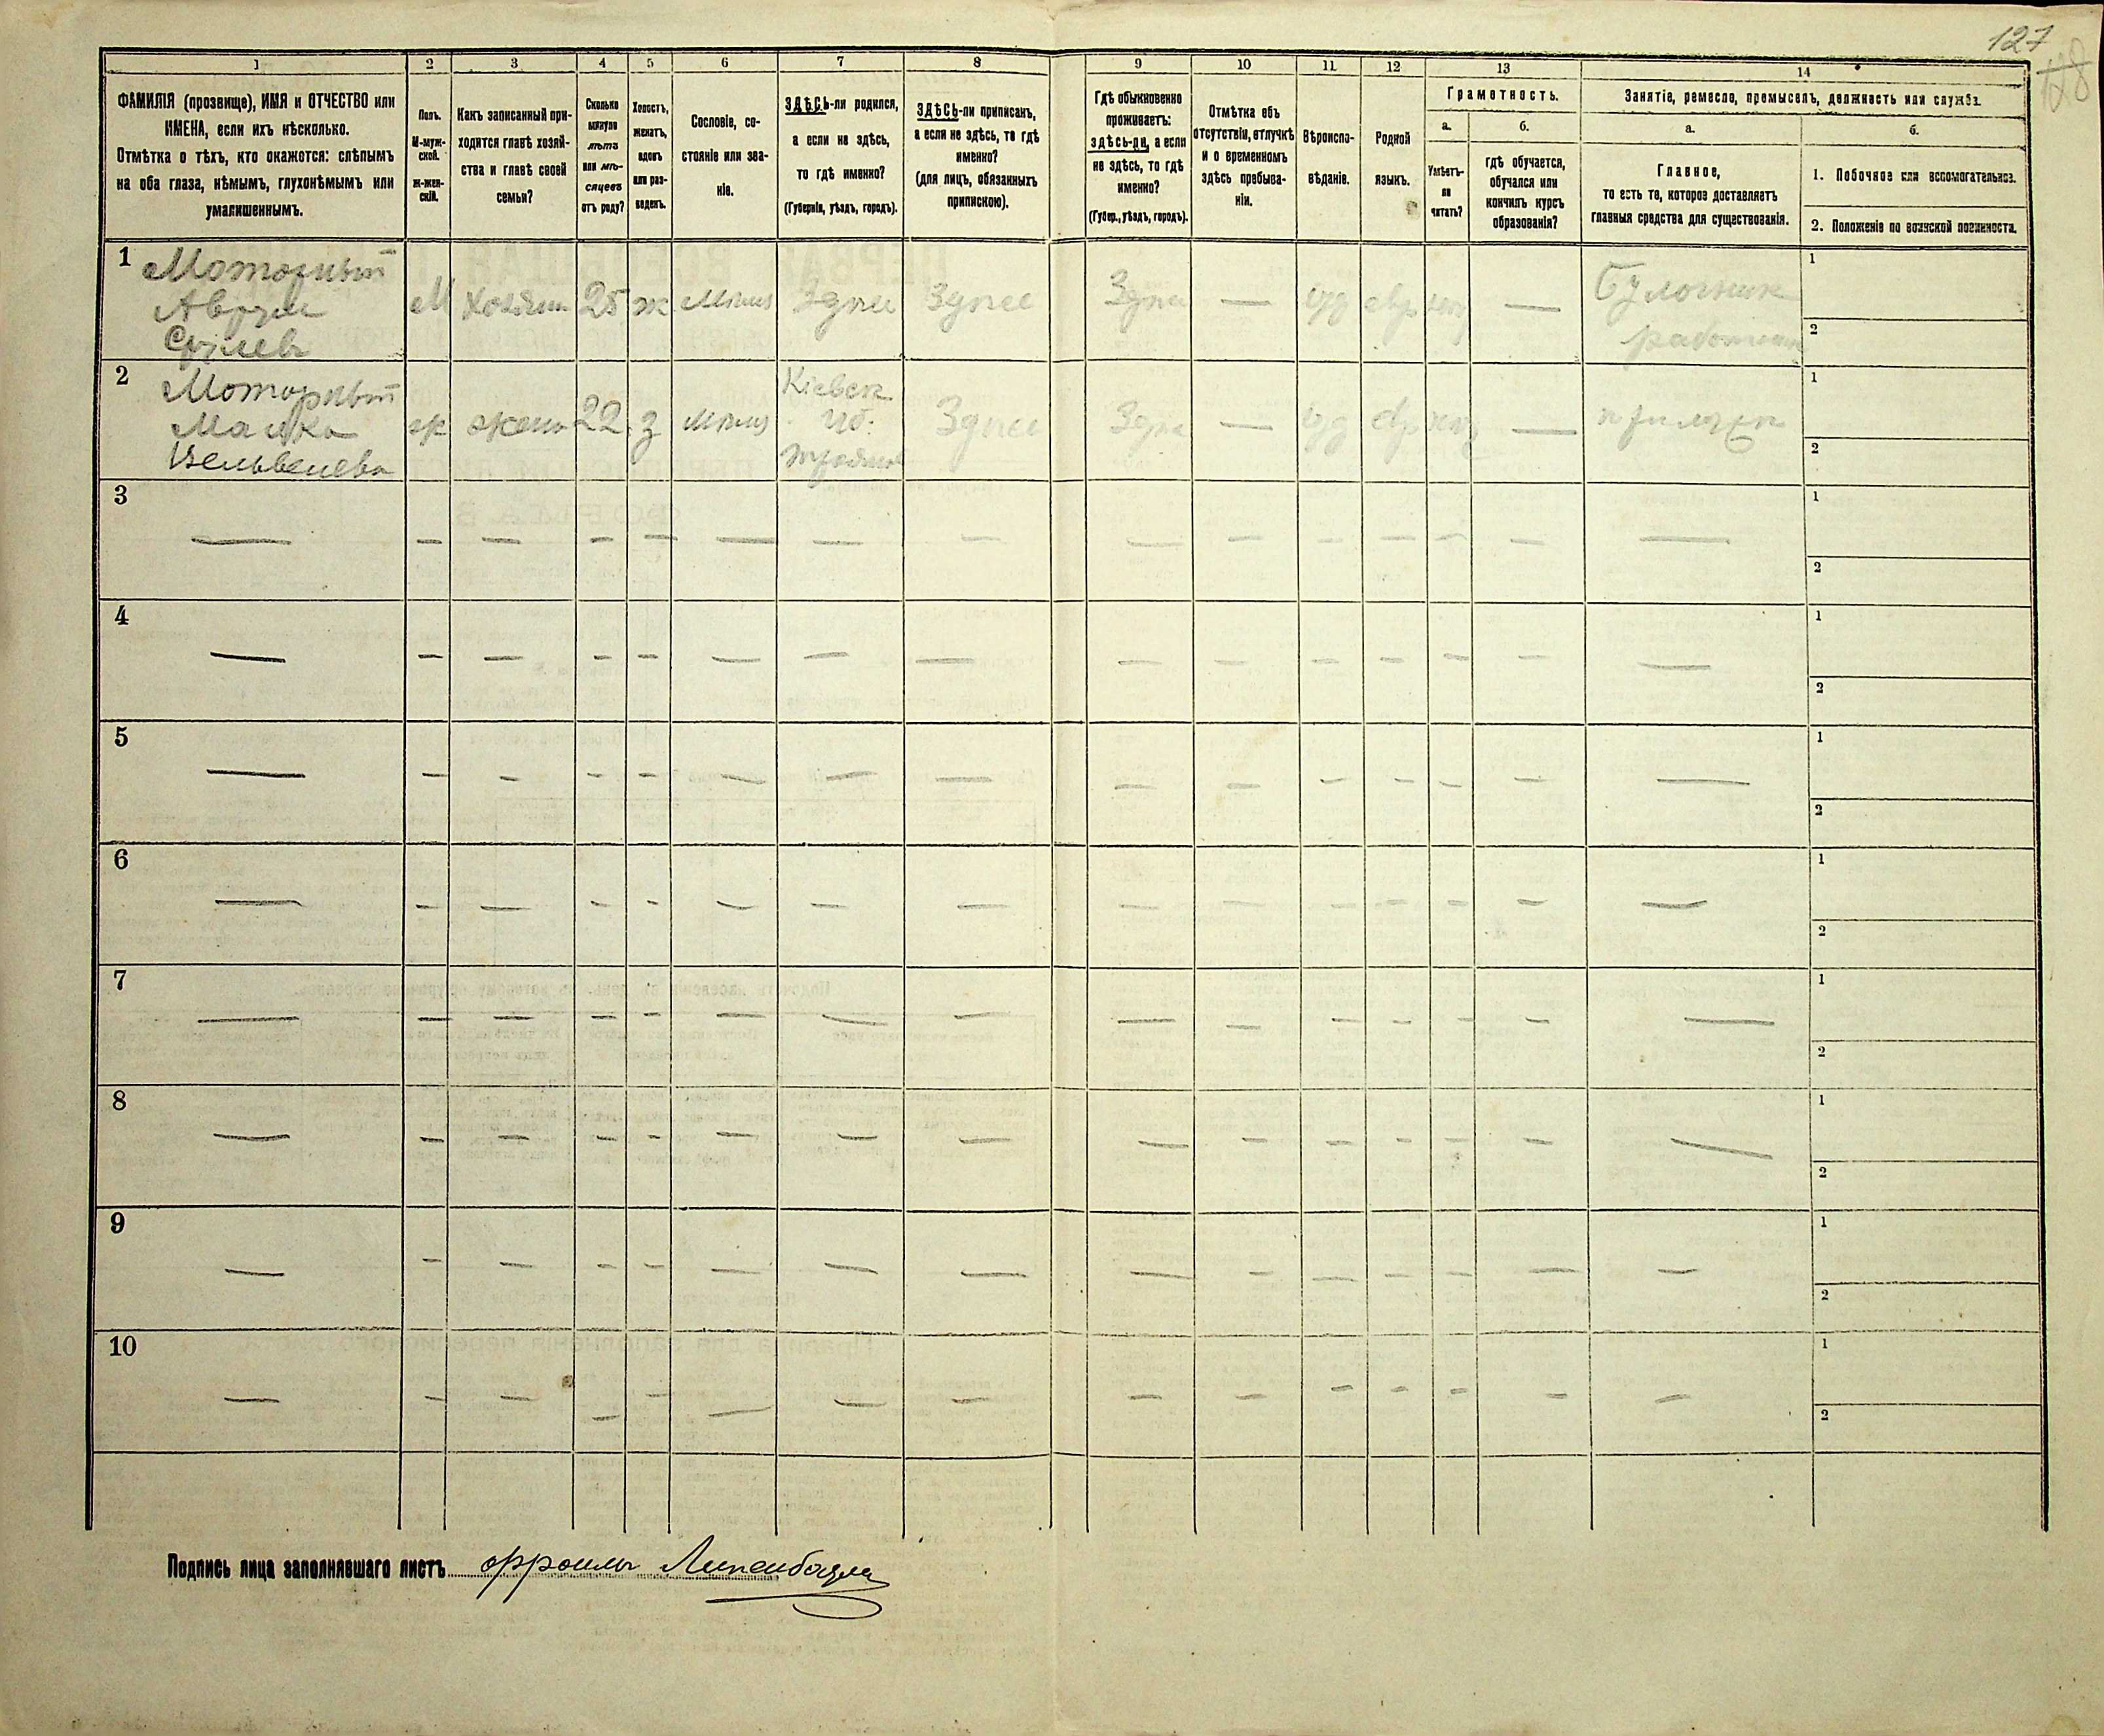 127
118
1 2 3 4 5 6 7 8 9 10 11 12 13 14
ФАМИЛІЯ (прозвище), ИМЯ и ОТЧЕСТВО или
ИМЕНА, если ихъ нѣсколько.
Отмѣтка о тѣхъ, кто окажется: слѣпымъ
на оба глаза, нѣмымъ, глухонѣмымъ или
умалишеннымъ.
Полъ.
М-муж-
ской.
ж-жен-
скій.
Какъ записанный при-
ходится главѣ хозяй-
ства и главѣ своей
семьи?
Сколько
минуло
лѣтъ
или мѣ-
сяцевъ
отъ роду?
Холостъ,
женатъ,
вдовъ
или раз-
веденъ.
Сословіе, со-
стояніе или зва-
ніе.
ЗДѢСЬ-ли родился,
а если не здѣсь,
то гдѣ именно?
(Губернія, уѣздъ, городъ).
ЗДѢСЬ-ли приписанъ,
а если не здѣсь, то гдѣ
именно?
(для лицъ, обязанныхъ
припискою).
Гдѣ обыкновенно
проживаетъ:
здѣсь-ли, а если
не здѣсь, то гдѣ
именно?
(Губер., уѣздъ, городъ).
Отмѣтка объ
отсутствіи, отлучкѣ
и о временномъ
здѣсь пребыва-
ніи.
Вѣроиспо-
вѣданіе.
Родной
языкъ.
Грамотность.
а.
Умѣетъ-
ли
читать?
б.
гдѣ обучается,
обучался или
кончилъ курсъ
образованія?
Занятіе, ремесло, промыселъ, должность или служба.
а.
Главное,
то есть то, которое доставляетъ
главныя средства для существованія.
б.
1. Побочное или вспомогательное.
2. Положеніе по воинской повинности.
1 Моторный
Аврум
Срулев
М хозяин 25 ж Здесь Здесь — иуд евр — Булочник
1
2
2 Моторный
Малка
ж жена 22 з Кіевск. Здесь — иуд евр —
1
2
3 — — — — — — — — — — — — — — —
1
2
4 — — — — — — — — — — — — — — —
1
2
5 — — — — — — — — — — — — — — —
1
2
6 — — — — — — — — — — — — — — —
1
2
7 — — — — — — — — — — — — — — —
1
2
8 — — — — — — — — — — — — — — —
1
2
9 — — — — — — — — — — — — — — —
1
2
10 — — — — — — — — — — — — — — —
1
2
Подпись лица заполнявшаго листъ